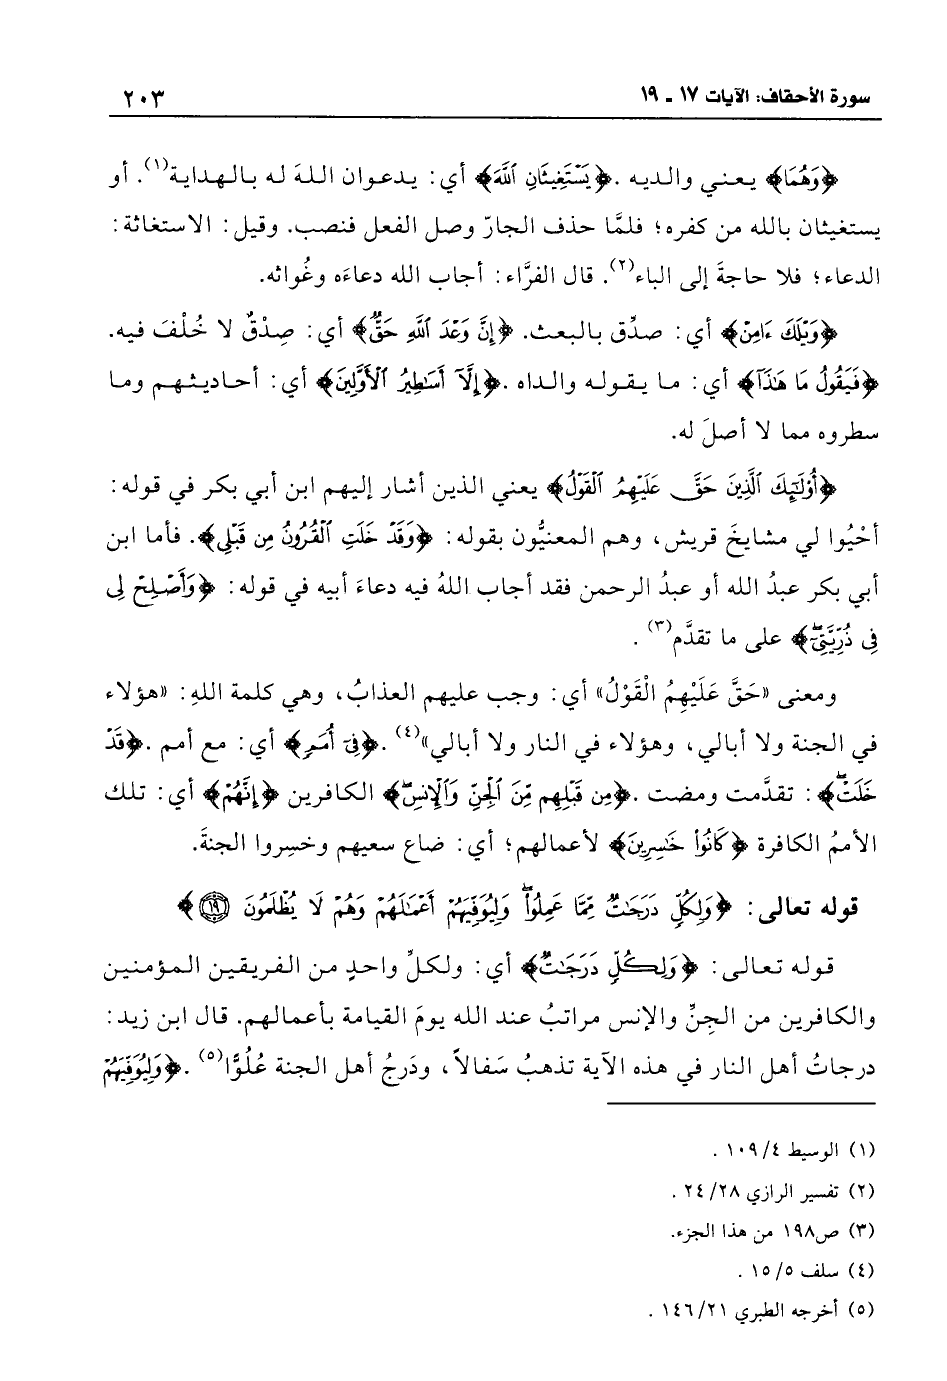 سورة الأحقاف: الآيات ١٧ - ١٩
٢٠٣
﴿وَهُمَا﴾ يعني والديه. ﴿يَسْتَغِيثَانِ ٱللَّهَ﴾ أي: يدعوان اللهَ له بالهداية(١). أو
يستغيثان بالله من كفره؛ فلمَّا حذف الجارّ وصل الفعل فنصب. وقيل: الاستغاثة:
الدعاء؛ فلا حاجةَ إلى الباء(٢). قال الفرَّاء: أجاب الله دعاءَه وغُواثه.
﴿وَيْلَكَ ءَامِنْ﴾ أي: صدِّق بالبعث. ﴿إِنَّ وَعْدَ ٱللَّهِ حَقٌّ﴾ أي: صِدْقٌ لا خُلْفَ فيه.
﴿فَيَقُولُ مَا هَٰذَآ﴾ أي: ما يقوله والداه. ﴿إِلَّآ أَسَٰطِيرُ ٱلْأَوَّلِينَ﴾ أي: أحاديثهم وما
سطروه مما لا أصلَ له.
﴿أُوْلَٰٓئِكَ ٱلَّذِينَ حَقَّ عَلَيْهِمُ ٱلْقَوْلُ﴾ يعني الذين أشار إليهم ابن أبي بكر في قوله:
أحْيُوا لي مشايخَ قريش، وهم المعنيُّون بقوله: ﴿وَقَدْ خَلَتِ ٱلْقُرُونُ مِن قَبْلِى﴾. فأما ابن
أبي بكر عبدُ الله أو عبدُ الرحمن فقد أجاب اللهُ فيه دعاءَ أبيه في قوله: ﴿وَأَصْلِحْ لِى
فِى ذُرِّيَّتِىٓ﴾ على ما تقدَّم(٣).
ومعنى «حَقَّ عَلَيْهِمُ الْقَوْلُ» أي: وجب عليهم العذابُ، وهي كلمة اللهِ: «هؤلاء
في الجنة ولا أبالي، وهؤلاء في النار ولا أبالي»(٤). ﴿فِىٓ أُمَمٍ﴾ أي: مع أمم. ﴿قَدْ
خَلَتْ﴾: تقدَّمت ومضت. ﴿مِن قَبْلِهِم مِّنَ ٱلْجِنِّ وَٱلْإِنسِ﴾ الكافرين ﴿إِنَّهُمْ﴾ أي: تلك
الأممُ الكافرة ﴿كَانُواْ خَٰسِرِينَ﴾ لأعمالهم؛ أي: ضاع سعيهم وخسِروا الجنةَ.
قوله تعالى: ﴿وَلِكُلٍّ دَرَجَٰتٌ مِّمَّا عَمِلُواْ وَلِيُوَفِّيَهُمْ أَعْمَٰلَهُمْ وَهُمْ لَا يُظْلَمُونَ ۝١٩﴾
قوله تعالى: ﴿وَلِكُلٍّ دَرَجَٰتٌ﴾ أي: ولكلِّ واحدٍ من الفريقين المؤمنين
والكافرين من الجِنِّ والإنس مراتبُ عند الله يومَ القيامة بأعمالهم. قال ابن زيد:
درجاتُ أهل النار في هذه الآية تذهبُ سَفالاً، ودَرجُ أهل الجنة عُلُوًّا(٥). ﴿وَلِيُوَفِّيَهُمْ
(١) الوسيط ٤/ ١٠٩ .
(٢) تفسير الرازي ٢٨/ ٢٤ .
(٣) ص١٩٨ من هذا الجزء.
(٤) سلف ٥/ ١٥ .
(٥) أخرجه الطبري ٢١/ ١٤٦ .